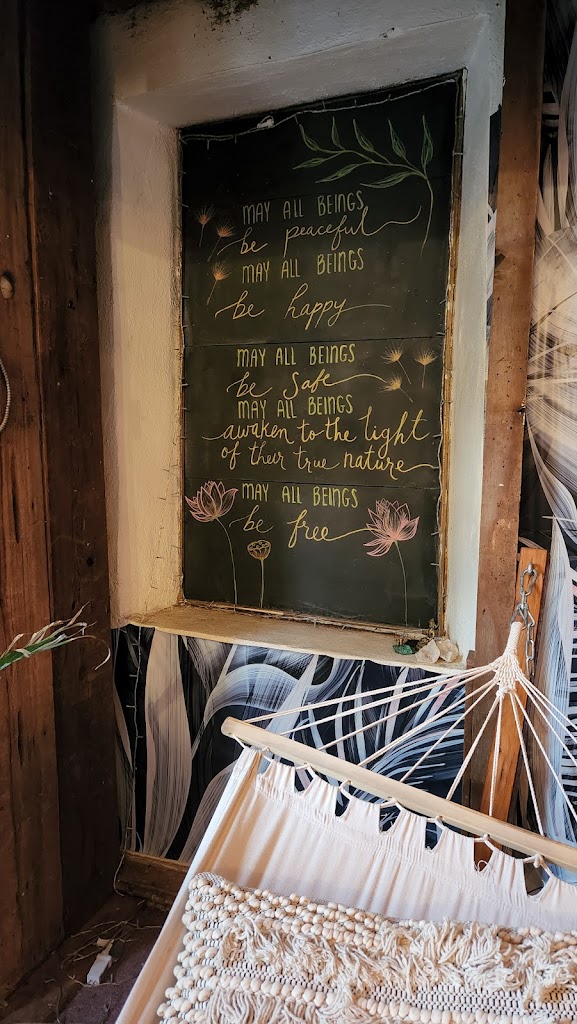 MAY ALL BEINGS
be peaceful
MAY ALL BEINGS
be happy
MAY ALL BEINGS
be safe
MAY ALL BEINGS
awaken to the light
of their true nature
MAY ALL BEINGS
be free